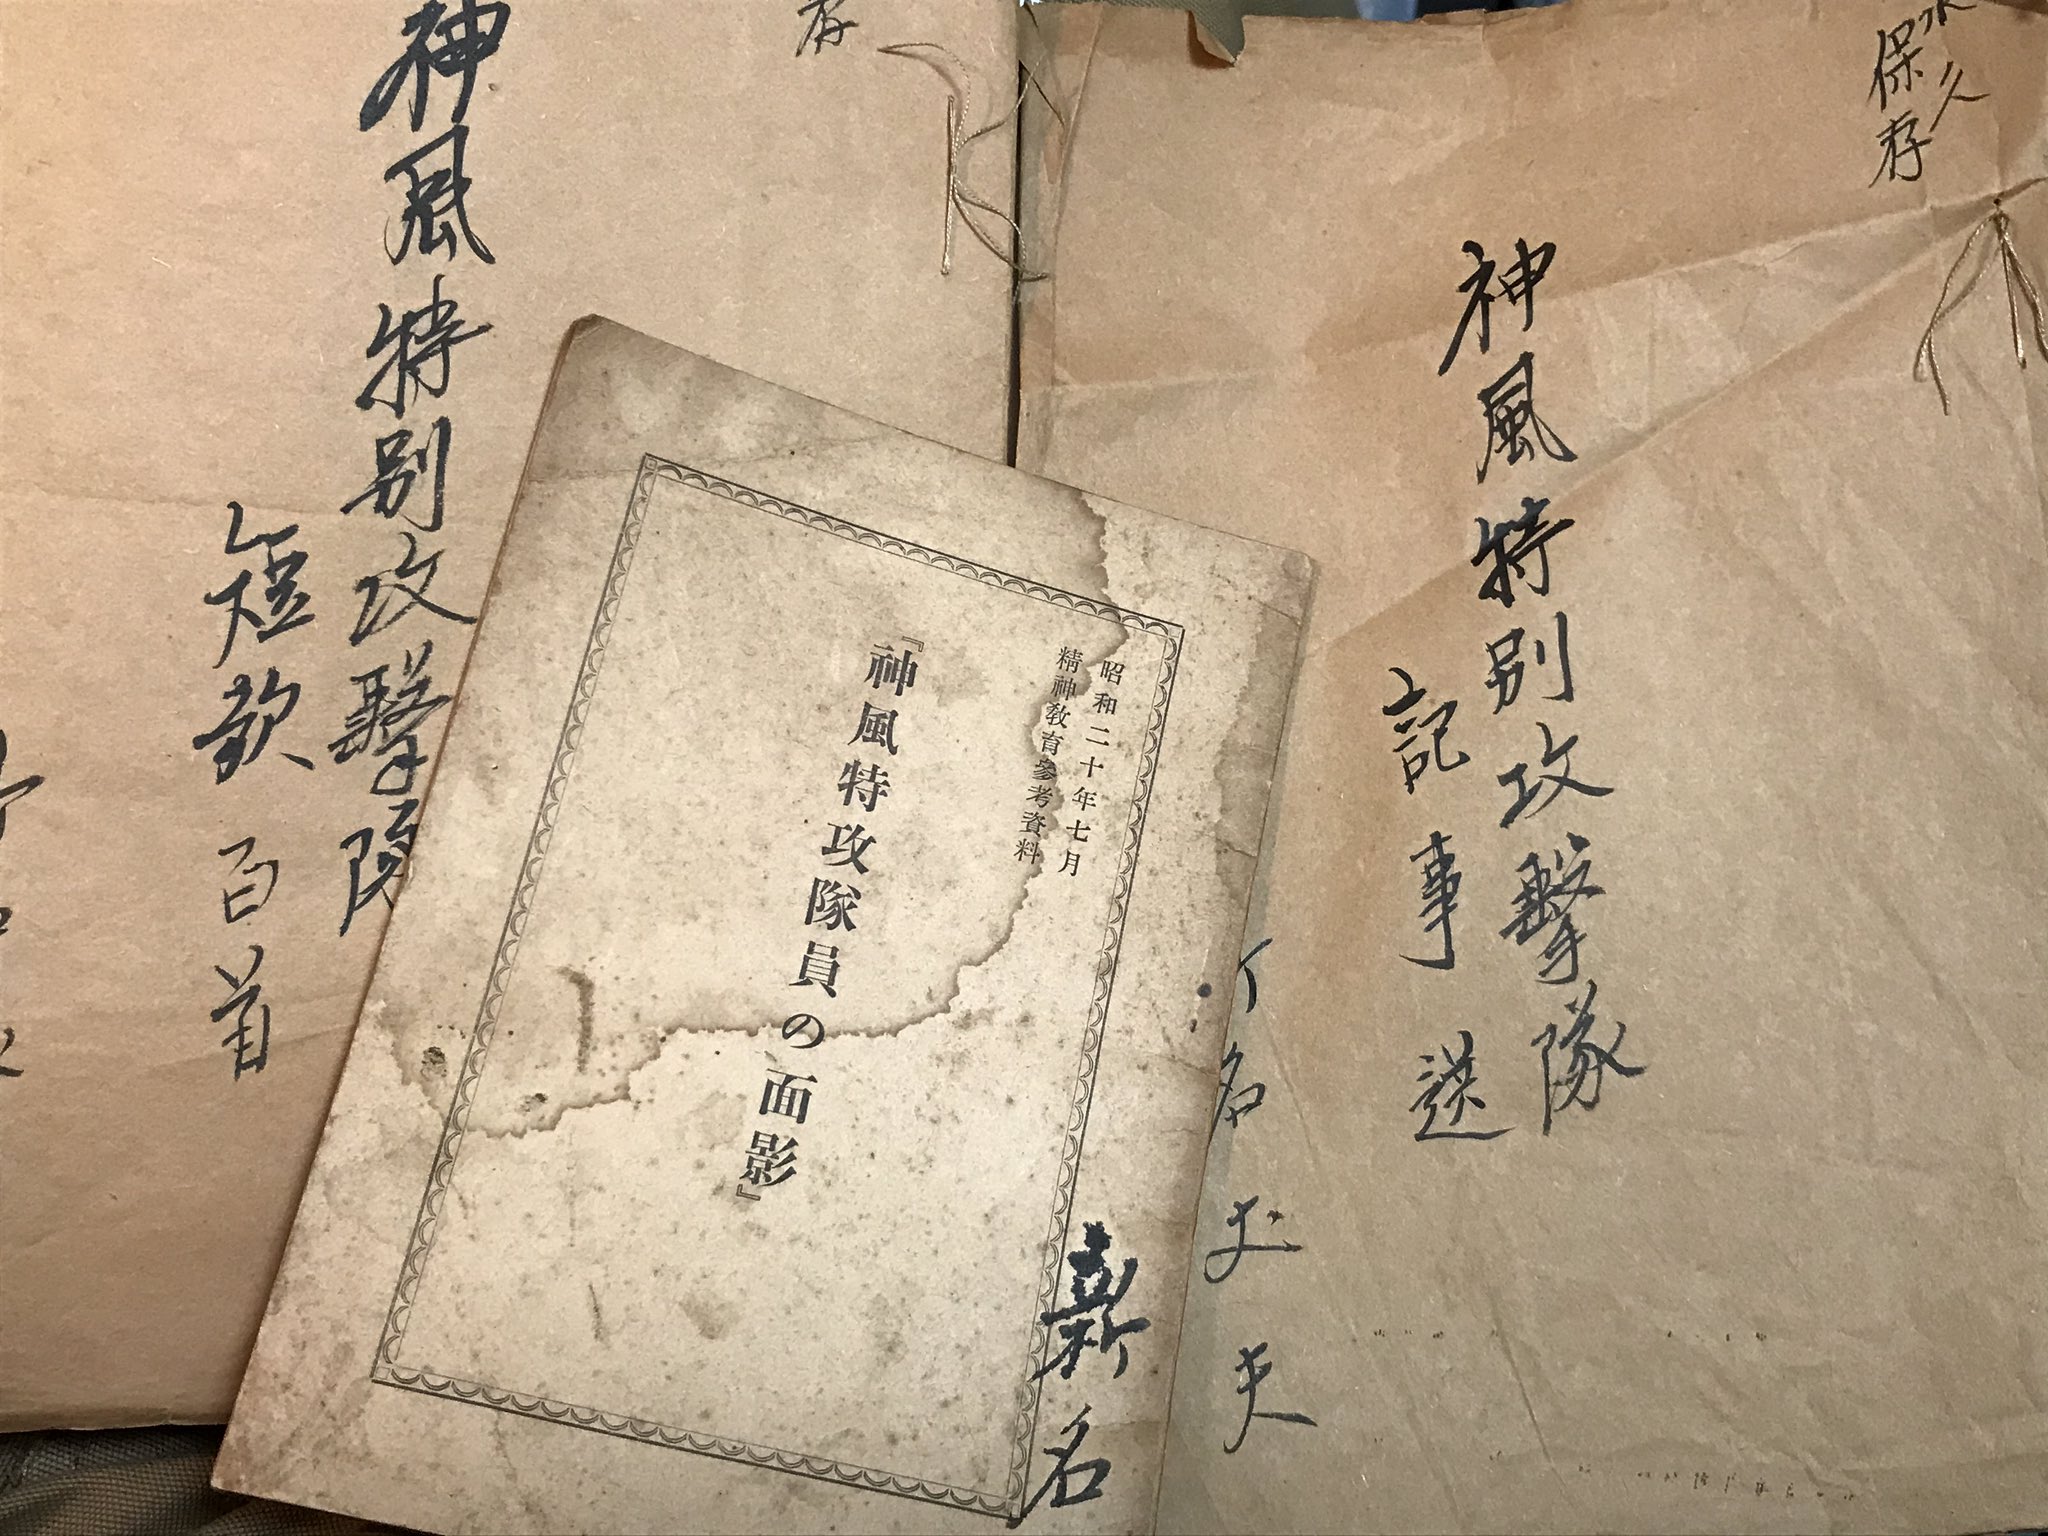 永久
保存
神風特別攻撃隊
記事送
名丈夫
昭和二十年七月
精神教育參考資料
『神風特攻隊員の面影』
新名
存
神風特別攻撃隊
短歌百首